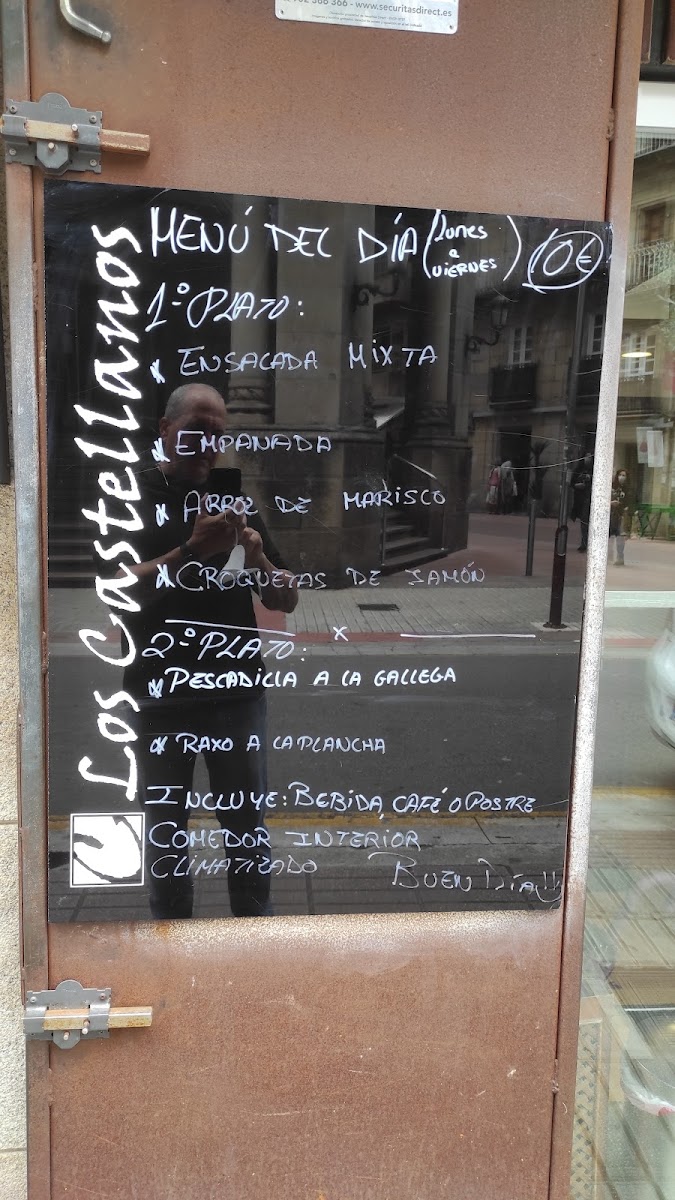 www.securitasdirect.es
Los Castellanos
MENÚ DEL DÍA (lunes a viernes) 10€
1º PLATO:
* ENSALADA MIXTA
* EMPANADA
* ARROZ DE MARISCO
* CROQUETAS DE JAMÓN
x
2º PLATO:
* PESCADILLA A LA GALLEGA
* RAXO A LA PLANCHA
INCLUYE: BEBIDA, CAFÉ O POSTRE
COMEDOR INTERIOR
CLIMATIZADO
BUEN DÍA!!